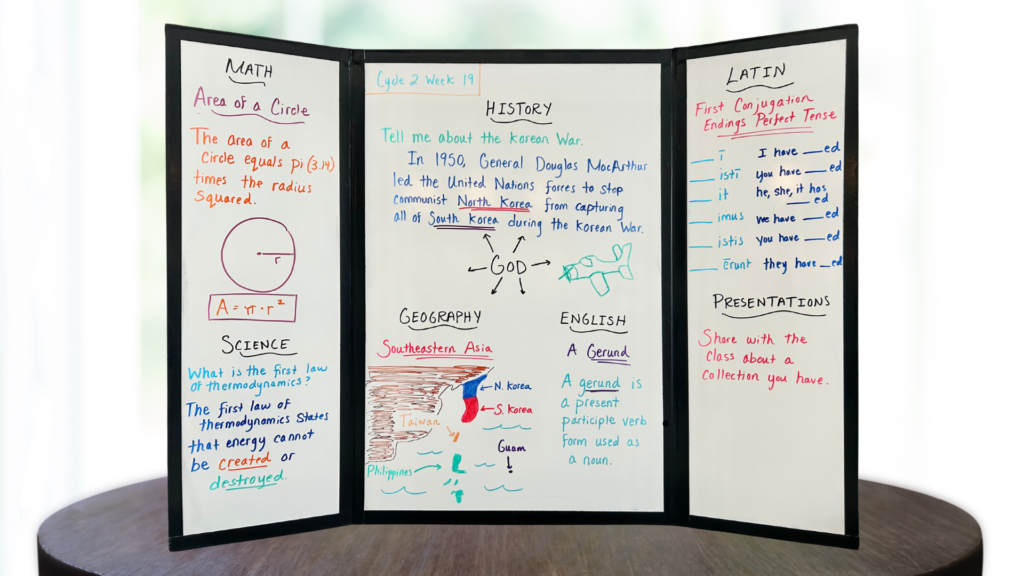 MATH
Area of a Circle
The area of a
Circle equals pi (3.14)
times the radius
Squared.
r
A = π · r²
SCIENCE
What is the first law
of thermodynamics?
The first law of
thermodynamics States
that energy cannot
be created or
destroyed.
Cycle 2 Week 19
HISTORY
Tell me about the Korean War.
In 1950, General Douglas MacArthur
led the United Nations forces to stop
communist North Korea from capturing
all of South Korea during the Korean War.
GOD
GEOGRAPHY
Southeastern Asia
N. Korea
S. Korea
Taiwan
Guam
Philippines
ENGLISH
A Gerund
A gerund is
a present
participle verb
form used as
a noun.
LATIN
First Conjugation
Endings Perfect Tense
___ ī I have ___ed
___ istī you have ___ed
___ it he, she, it has
___ed
___ imus we have ___ed
___ istis you have ___ed
___ ērunt they have ___ed
PRESENTATIONS
Share with the
Class about a
Collection you have.